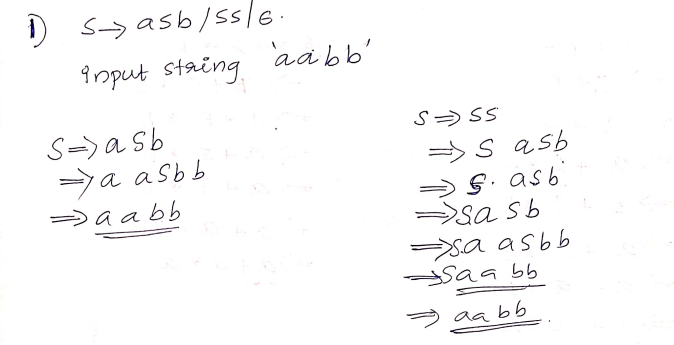 1) S → aSb / SS | ε.
Input string 'aabb'
S ⇒ aSb
⇒ a aSbb
⇒ aabb
S ⇒ SS
⇒ S aSb
⇒ S. aSb
⇒ Sa Sb
⇒ S.a aSbb
⇒ Saa bb
⇒ aabb.